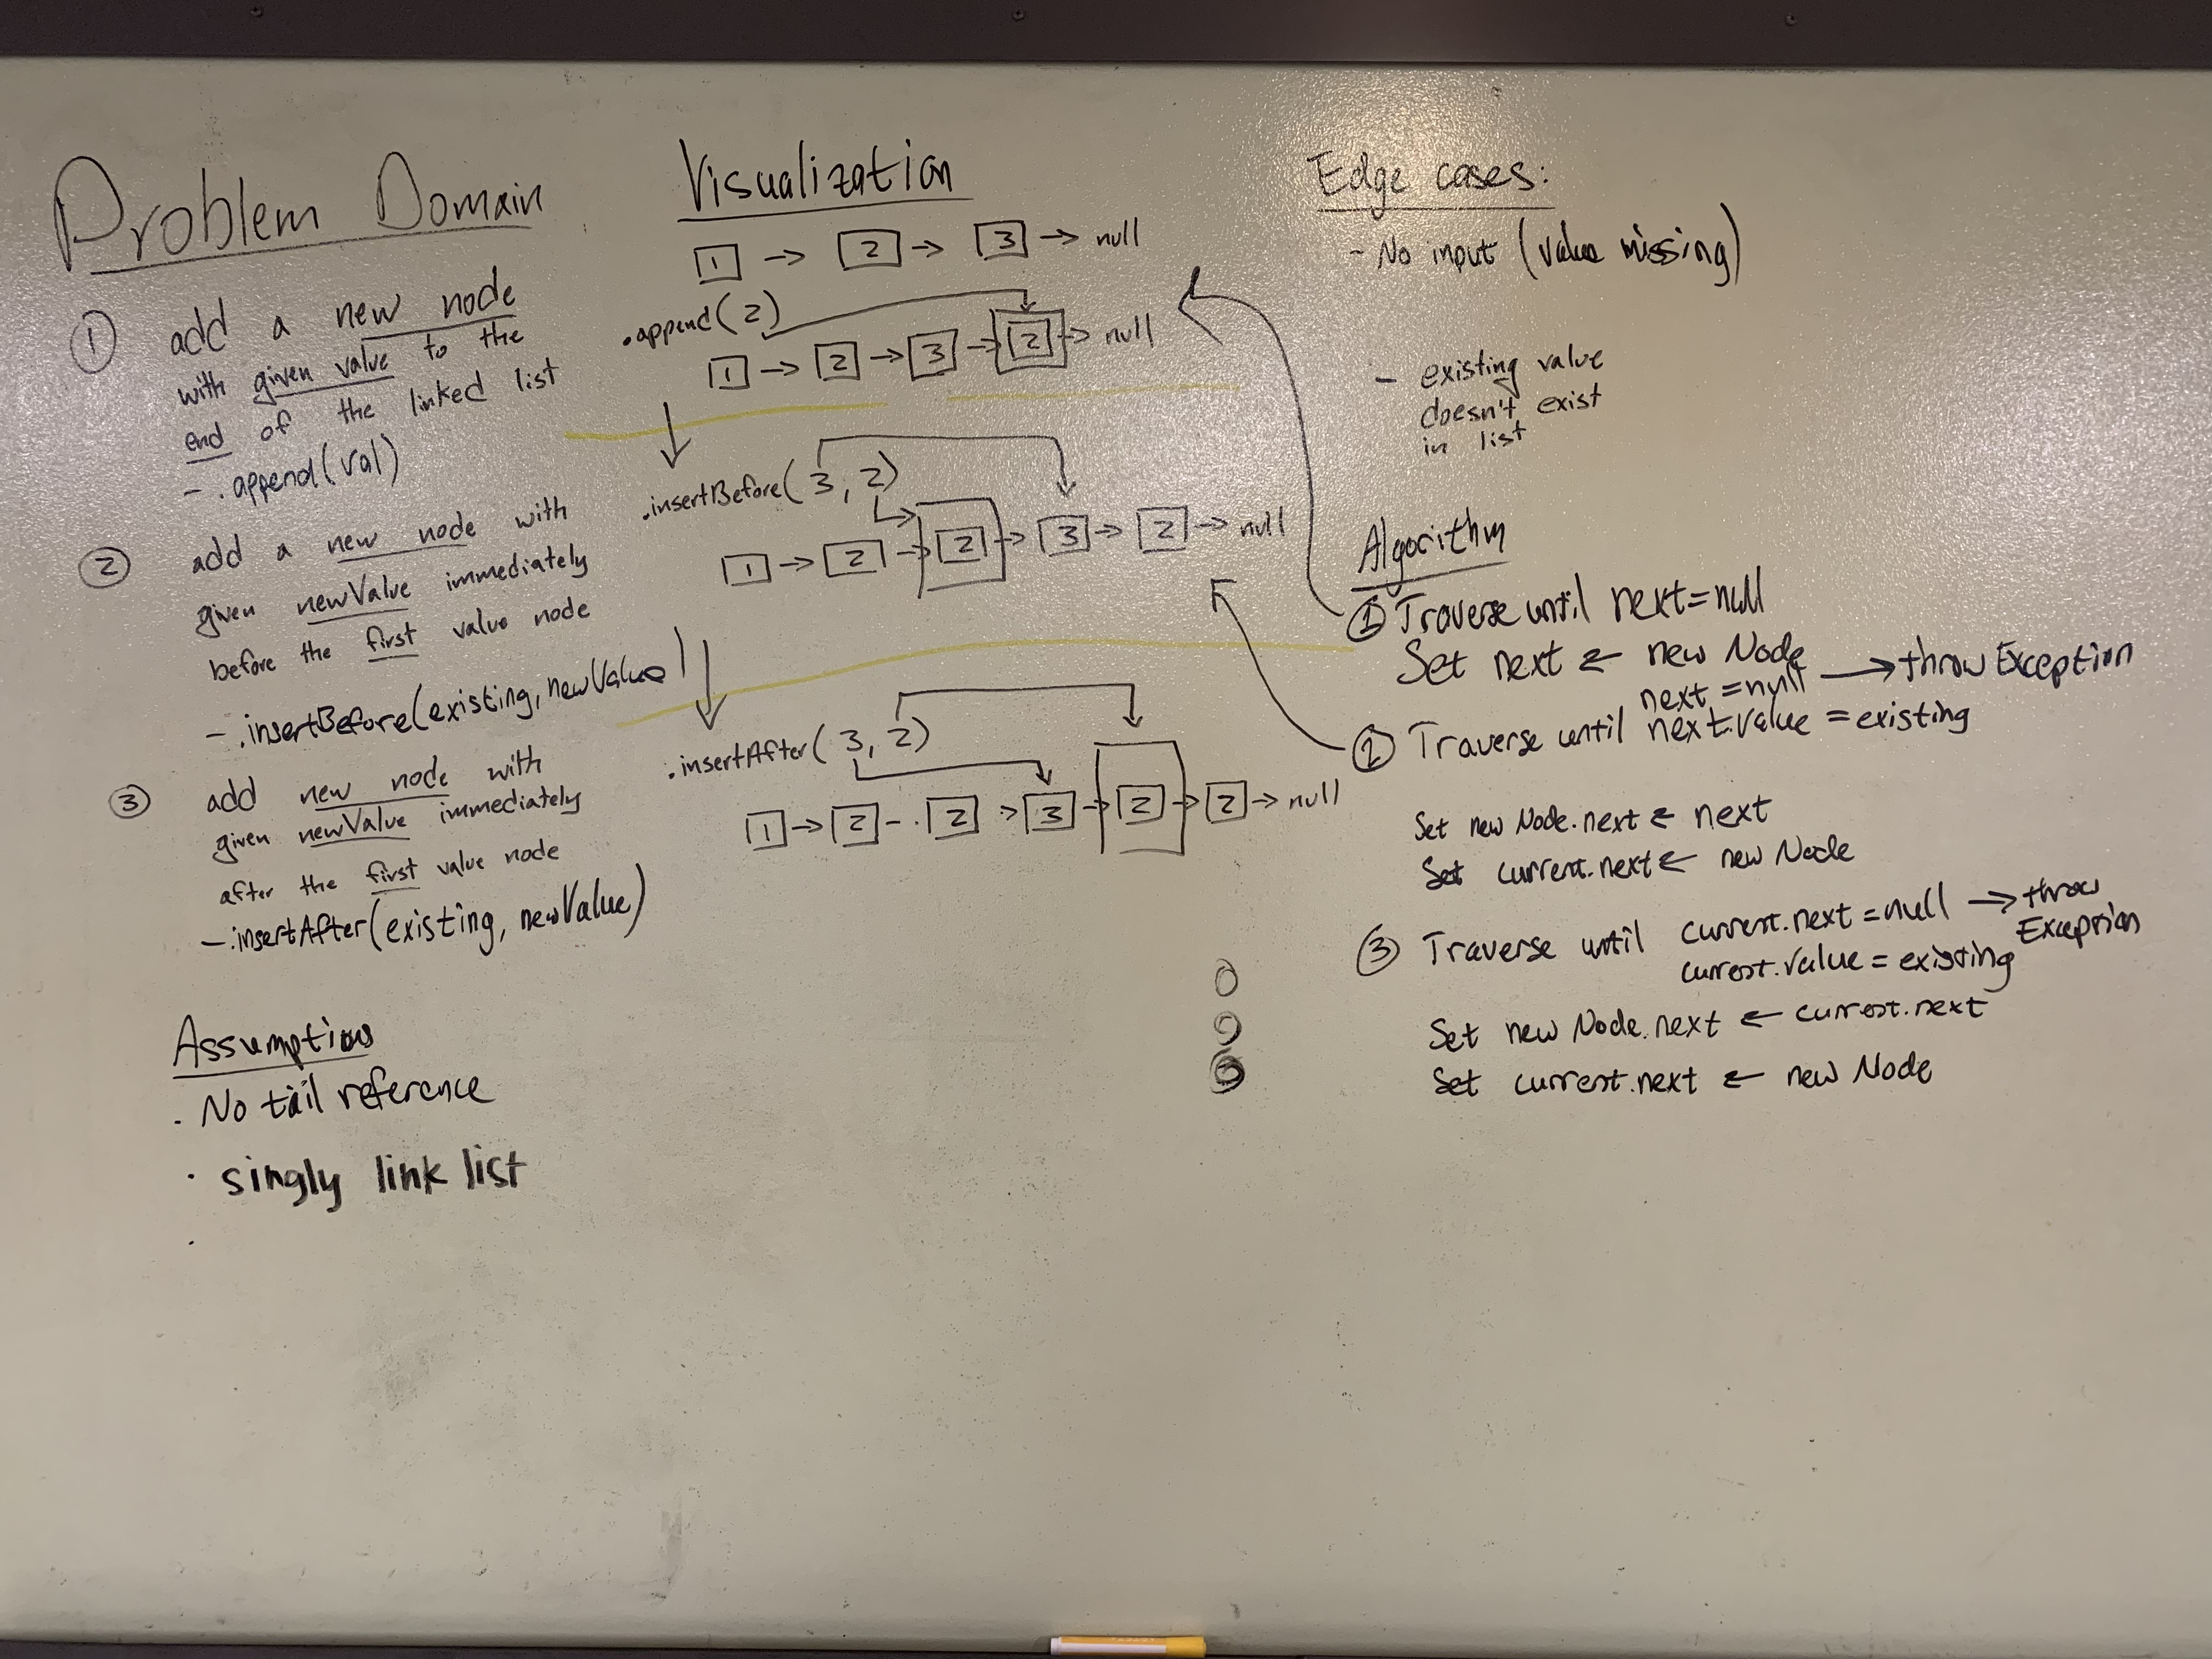 Problem Domain
① add a new node
with given value to the
end of the linked list
- .append(val)
② add a new node with
given newValue immediately
before the first value node
- .insertBefore(existing, newValue)
③ add new node with
given newValue immediately
after the first value node
- .insertAfter(existing, newValue)
Assumptions
. No tail reference
· singly link list
.
Visualization
1 → 2 → 3 → null
.append(2)
1 → 2 → 3 → 2 → null
.insertBefore(3, 2)
1 → 2 → 2 → 3 → 2 → null
.insertAfter(3, 2)
1 → 2 - . 2 > 3 → 2 → 2 → null
Edge cases:
- No input (value missing)
- existing value
doesn't exist
in list
Algorithm
① Traverse until next = null
Set next ← new Node
next = null → throw Exception
② Traverse until next.value = existing
Set new Node.next ← next
Set current.next ← new Node
③ Traverse until current.next = null → throw Exception
current.value = existing
Set new Node.next ← current.next
Set current.next ← new Node